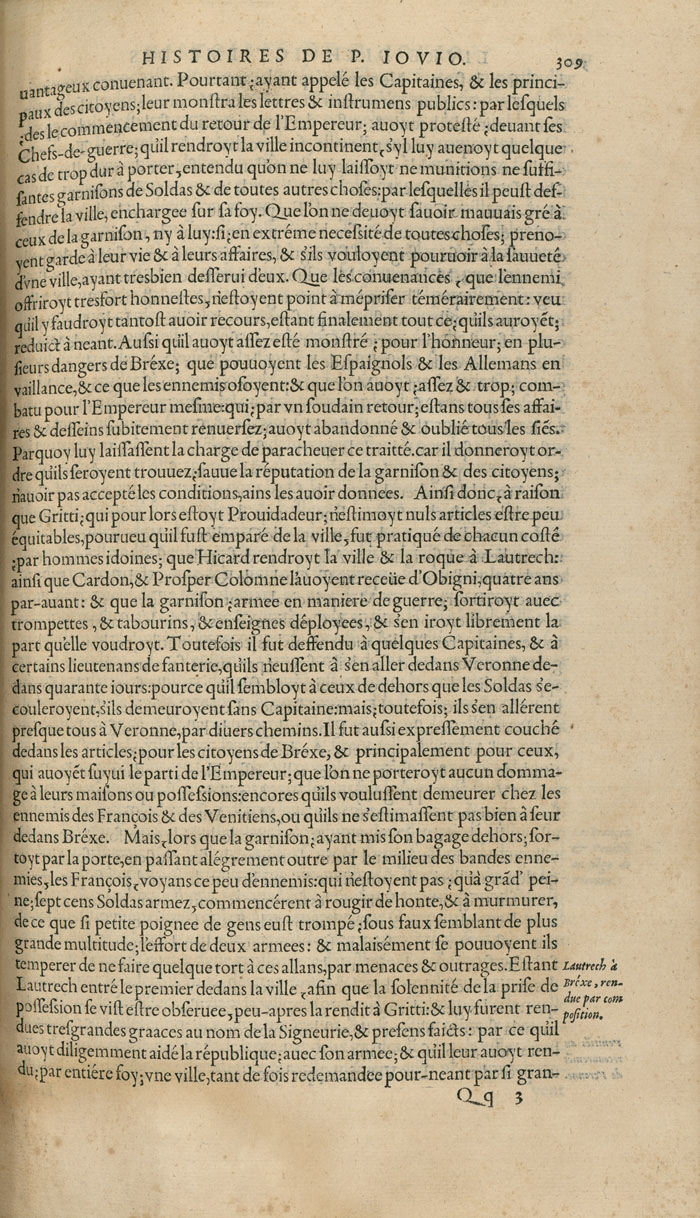 HISTOIRES DE P. IOVIO. 309
uantageux conuenant. Pourtant ;ayant appelé les Capitaines, & les princi-
paux des citoyens;leur monſtra les lettres & inſtrumens publics: par leſquels
;des le commencement du retour de l'Empereur; auoyt proteſté ;deuant ſes
Chefs-de-guerre; qu'il rendroyt la ville incontinent, s'yl luy auenoyt quelque
cas de trop dur à porter, entendu qu'on ne luy laiſſoyt ne munitions ne ſuffi-
ſantes garniſons de Soldas & de toutes autres choſes:par leſquelles il peuſt deſ-
fendre la ville, enchargee ſur ſa foy. Que l'on ne deuoyt ſauoir mauuais gré à
ceux de la garniſon, ny à luy:ſi;en extréme neceſsité de toutes choſes; preno-
yent garde à leur vie & à leurs affaires, & s'ils vouloyent pouruoir à la ſauueté
d'vne ville,ayant tresbien deſſerui d'eux. Que les conuenances , que l'ennemi
offriroyt tresfort honneſtes, n'eſtoyent point à mépriſer témérairement: veu
qu'il y faudroyt tantoſt auoir recours,eſtant finalement tout ce;qu'ils auroyẽt;
reduict à neant. Auſsi qu'il auoyt aſſez eſté monſtré ; pour l'honneur; en plu-
ſieurs dangers de Bréxe; que pouuoyent les Eſpaignols & les Allemans en
vaillance,& ce que les ennemis oſoyent:& que l'on auoyt ;aſſez & trop; com-
batu pour l'Empereur meſme:qui;par vn ſoudain retour;eſtans tous ſes affai-
res & deſſeins ſubitement renuerſez;auoyt abandonné & oublié tous les ſiés.
Parquoy luy laiſſaſſent la charge de paracheuer ce traitté.car il donneroyt or-
dre qu'ils ſeroyent trouuez;ſauue la réputation de la garniſon & des citoyens;
n'auoir pas accepté les conditions,ains les auoir donnees. Ainſi donc, à raiſon
que Gritti;qui pour lors eſtoyt Prouidadeur; n'eſtimoyt nuls articles eſtre peu
équitables,pourueu qu'il fuſt emparé de la ville, fut pratiqué de chacun coſté
;par hommes idoines; que Hicard rendroyt la ville & la roque à Lautrech:
ainſi que Cardon,& Proſper Colomne l'auoyent receüe d'Obigni,quatre ans
par-auant: & que la garniſon ;armee en maniere de guerre; ſortiroyt auec
trompettes , & tabourins, & enſeignes déployees, & s'en iroyt librement la
part qu'elle voudroyt. Toutefois il fut deffendu à quelques Capitaines, & à
certains lieutenans de fanterie,qu'ils n'euſſent â s'en aller dedans Veronne de-
dans quarante iours:pource qu'il ſembloyt à ceux de dehors que les Soldas s'e-
couleroyent,s'ils demeuroyent ſans Capitaine:mais;toutefois; ils s'en allérent
preſque tous à Veronne,par diuers chemins.Il fut auſsi expreſſement couché
dedans les articles;pour les citoyens de Bréxe, & principalement pour ceux,
qui auoyẽt ſuyui le parti de l'Empereur; que l'on ne porteroyt aucun domma-
ge à leurs maiſons ou poſſeſsions:encores qu'ils vouluſſent demeurer chez les
ennemis des François & des Venitiens,ou qu'ils ne s'eſtimaſſent pas bien à ſeur
dedans Bréxe. Mais,lors que la garniſon;ayant mis ſon bagage dehors; ſor-
toyt par la porte,en paſſant alégrement outre par le milieu des bandes enne-
mies,les François,voyans ce peu d'ennemis:qui n'eſtoyent pas ;qu'à grãd' pei-
ne;ſept cens Soldas armez, commencérent à rougir de honte, & à murmurer,
de ce que ſi petite poignee de gens euſt trompé ;ſous faux ſemblant de plus
grande multitude;l'effort de deux armees: & malaisément ſe pouuoyent ils
temperer de ne faire quelque tort à ces allans,par menaces & outrages.Eſtant
Lautrech entré le premier dedans la ville , afin que la ſolennité de la priſe de
poſſeſsion ſe viſt eſtre obſeruee,peu-apres la rendit à Gritti:& luy furent ren-
dues treſgrandes graaces au nom de la Signeurie,& preſens faicts: par ce qu'il
auoyt diligemment aidé la république;auec ſon armee; & qu'il leur auoyt ren-
du;par entiére foy; vne ville,tant de fois redemandee pour-neant par ſi gran-
Lautrech à
Bréxe, ren-
due par com
poſition.
Qq 3